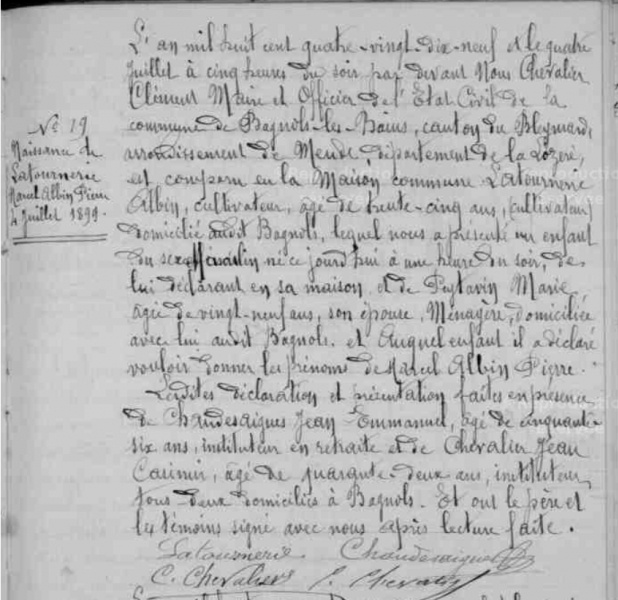 L'an mil huit cent quatre-vingt-dix-neuf et le quatre
Juillet à cinq heures du soir par devant Nous Chevalier
Clément Maire et Officier de l'Etat Civil de la
commune de Bagnols-les-Bains, canton du Bleymard,
arrondissement de Mende, département de la Lozère,
est comparu en la Maison commune Latournerie
Albin, cultivateur, âgé de trente-cinq ans, (cultivateur)
domicilié audit Bagnols, lequel nous a présenté un enfant
du sexe Masculin né ce jourd'hui à une heure du soir, de
lui déclarant en sa maison et de Peytavin Marie
âgée de vingt-neuf ans, son épouse, Ménagère, domiciliée
avec lui audit Bagnols. et auquel enfant il a déclaré
vouloir donner les prénoms de Marcel Albin Pierre.
Lesdites déclaration et présentation faites en présence
de Chaudesaigues Jean Emmanuel, âgé de cinquante
six ans, instituteur en retraite et de Chevalier Jean
Casimir, âgé de quarante-deux ans, instituteur,
tous deux domiciliés à Bagnols. Et ont le père et
les témoins signé avec nous après lecture faite.
Latournerie Chaudesaigues
C. Chevalier Chevalier
N° 19
Naissance de
Latournerie
Marcel Albin Pierre
4 Juillet 1899.